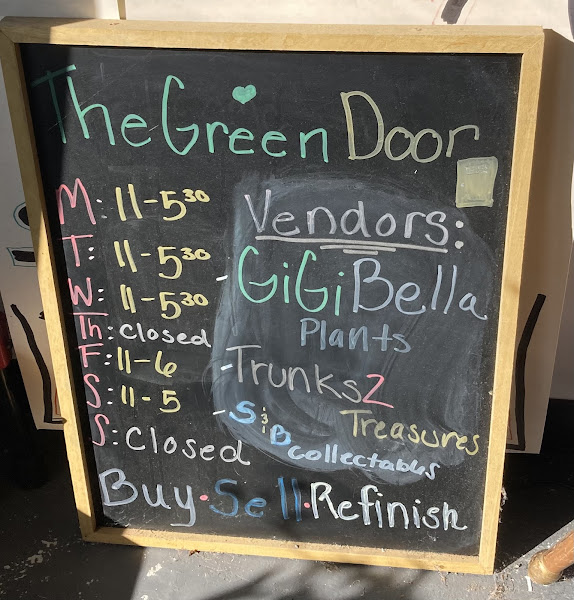 The Green Door
M: 11-5³⁰
T: 11-5³⁰
W: 11-5³⁰
Th: closed
F: 11-6
S: 11-5
S: Closed
Vendors:
- GiGi Bella
Plants
- Trunks 2
Treasures
- S & B
collectables
Buy • Sell • Refinish